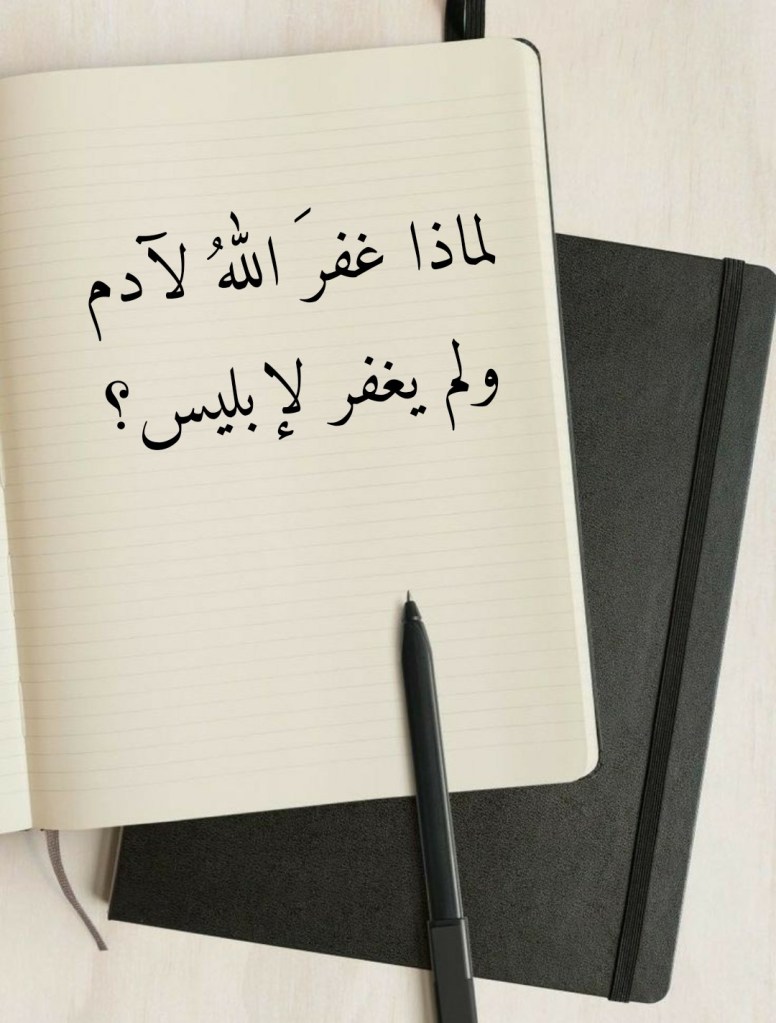 لماذا غفرَ اللهُ لآدم
ولم يغفر لإبليس؟